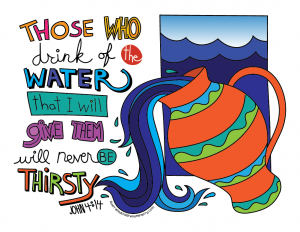 THOSE WHO
drink of the
WATER
that I will
GIVE THEM
will never BE
THIRSTY
JOHN 4:14